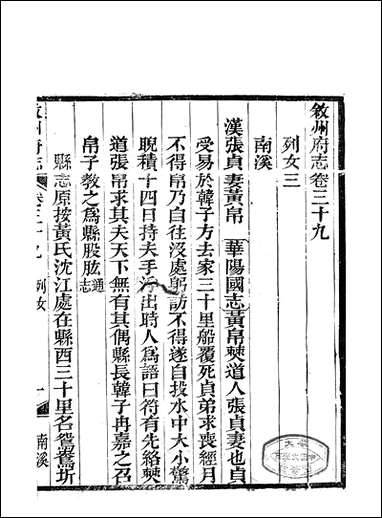 敘州府志卷三十九
列女三
南溪
漢張貞妻黃帛　華陽國志黃帛僰道人張貞妻也貞
受易於韓子方去家三十里船覆死貞弟求喪經月
不得帛乃自往沒處躬訪不得遂自投水中大小驚
睨積十四日持夫手浮出時人爲語曰符有先絡僰
道張帛求其夫天下無有其偶縣長韓子冉嘉之召
帛子敎之爲縣股肱通志
縣志原按黃氏沈江處在縣西三十里名鴛鴦圻
敘州府志
卷三十九　列女
一
南溪